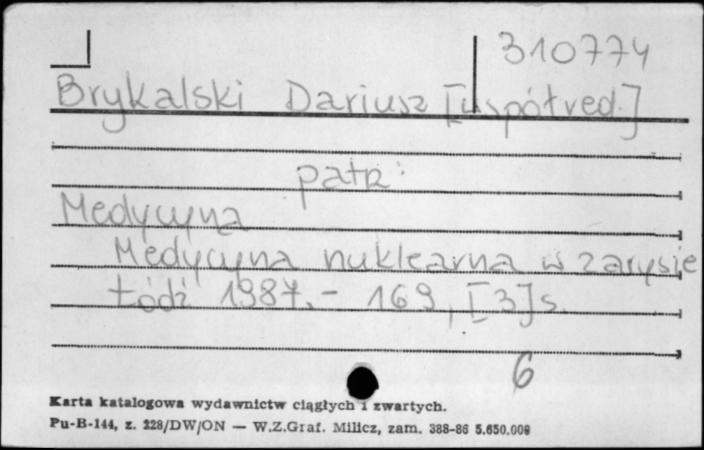 310774
Brykalski Dariusz [współred.]
patrz:
Medycyna
Medycyna nuklearna w zarysie
Łódź 1987.- 169, [3] s.
6
Karta katalogowa wydawnictw ciągłych i zwartych.
Pu-B-144, z. 228/DW/ON — W.Z.Graf. Milicz, zam. 388-86 5.650.000